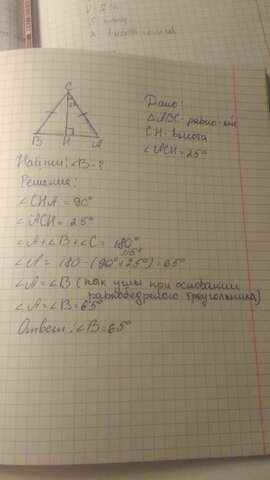 C
25
B H A
Дано:
△ABC - равно-ый
CH - высота
∠ACH = 25°
Найти: ∠B - ?
Решение:
∠CHA = 90°
∠ACH = 25°
∠A + ∠B + ∠C = 180°
115°
∠A = 180 - (90° + 25°) = 65°
∠A = ∠B (как углы при основании
равнобедренного треугольника)
∠A = ∠B = 65°
Ответ: ∠B = 65°